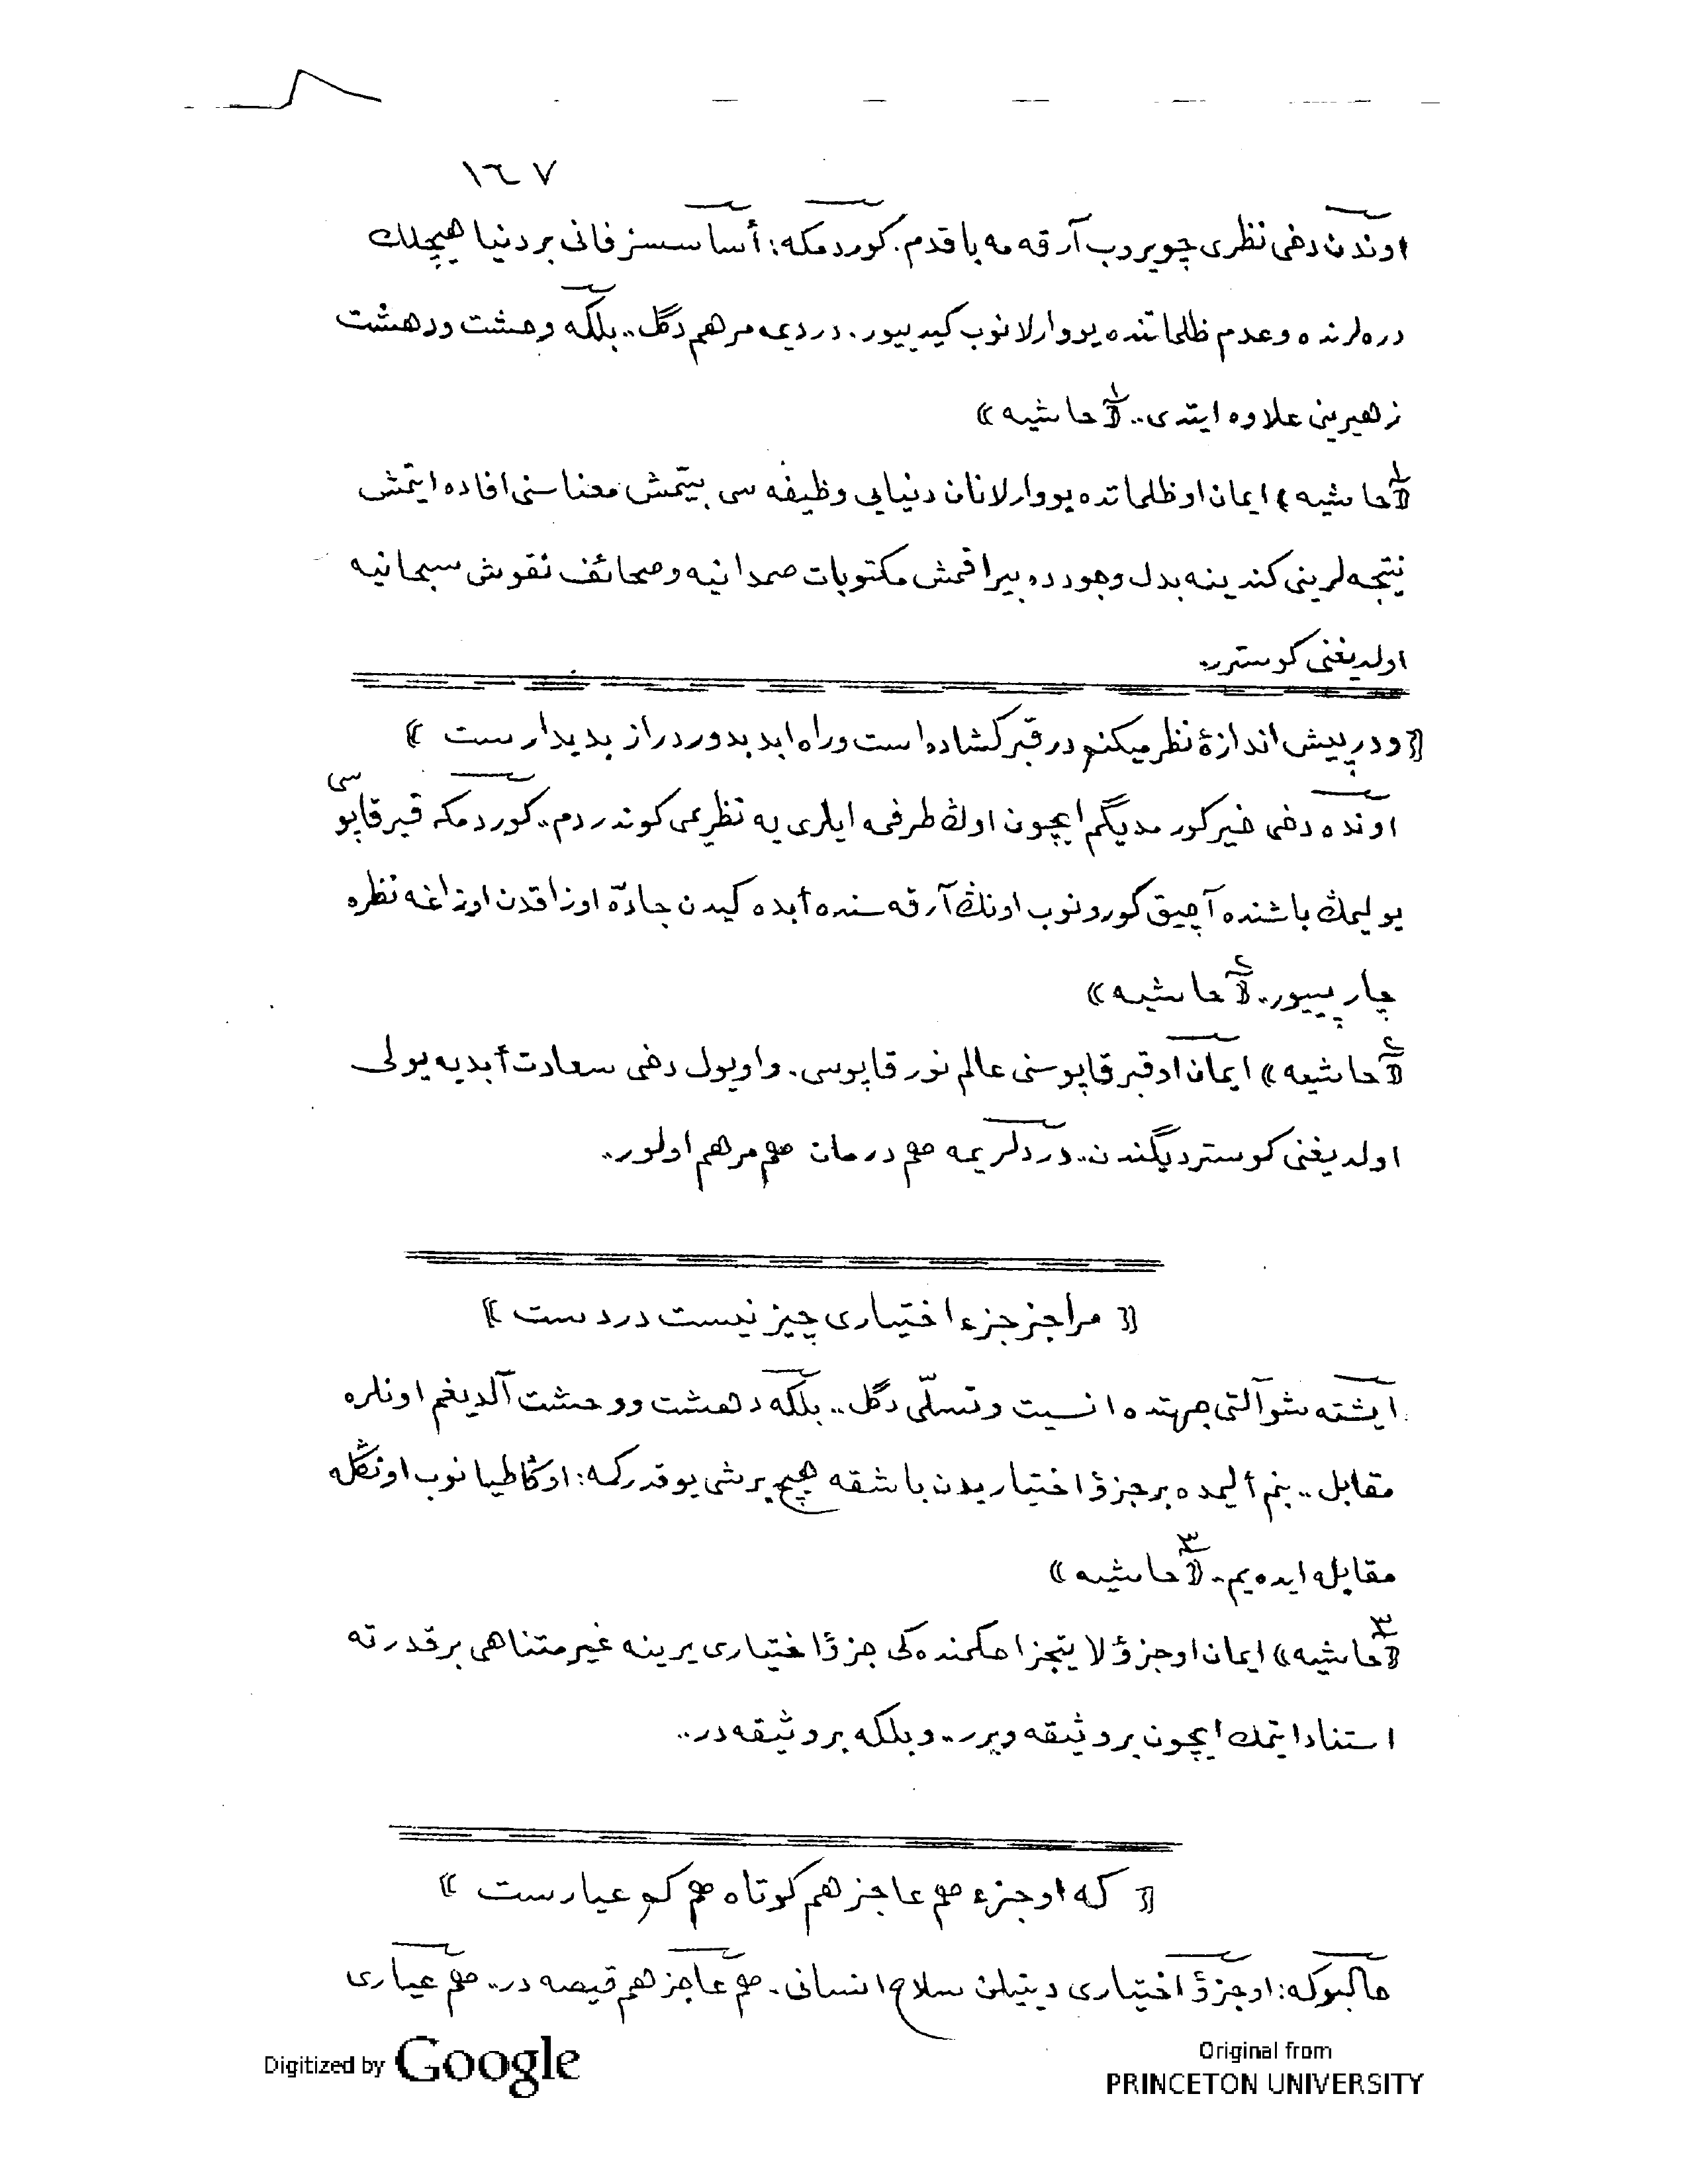 ١٦٧
اوندن دخی نظری چویروب آرقه مه باقدم. كوردمكه: أساسسز فانی بر دنیا هیچلك
دره‌لرنده و عدم ظلماتنده یووارلانوب كیدییور. دردیمه مرهم دگل.. بلكه وحشت ودهشت
زهیرینی علاوه ایتدی.. ⟪حاشیه١⟫
⟪حاشیه١⟫ ایمان او ظلماتده یووارلانان دنیایی وظیفه سی بیتمش معناسنی افاده ایتمش
نتیجه‌لرینی كندینه بدل وجودده بیراقمش مكتوبات صمدانیه وصحائف نقوش سبحانیه
اولدیغنی كوسترر.
⟪ ودر پیش اندازهٔ نظر میكنم در قبر كشاده است وراه ابد بدور دراز بدیدارست ⟫
اونده دخی خیر كورمدیگم ایچون اوڭ طرفمه ایلری یه نظریمی كوندردم.. كوردمكه قبر قاپوسی
یولیمڭ باشنده آچیق كورونوب اونڭ آرقه سنده أبده كیدن جادّه اوزاقدن اوزاغه نظره
چارپییور. ⟪حاشیه٢⟫
⟪حاشیه٢⟫ ایمان او قبر قاپوسنی عالم نور قاپوسی. واویول دخی سعادت أبدیه یولی
اولدیغنی كوستردیگندن.. دردلریمه هم درمان هم مرهم اولور..
⟪ مرا جز جزء اختیاری چیز نیست در دست ⟫
ایشته شو آلتی جهتده انسیت وتسلّی دگل.. بلكه دهشت ووحشت آلدیغم اونلره
مقابل.. بنم ألیمده بر جزؤ اختیاریدن باشقه هیچ بر شی یوقدركه: اوڭا طیانوب اونڭله
مقابله ایده‌یم. ⟪حاشیه٣⟫
⟪حاشیه٣⟫ ایمان او جزؤ لا یتجزا حكمنده‌كی جزؤ اختیاری یرینه غیر متناهی بر قدرته
استناد ایتمك ایچون بر وثیقه ویرر.. وبلكه بر وثیقه‌در..
⟪ كه او جزء هم عاجز هم كوتاه هم كم عیارست ⟫
حالبوكه: او جزؤ اختیاری دینیلن سلاح انسانی. هم عاجز هم قیصه در.. هم عیاری
Digitized by Google
Original from
PRINCETON UNIVERSITY